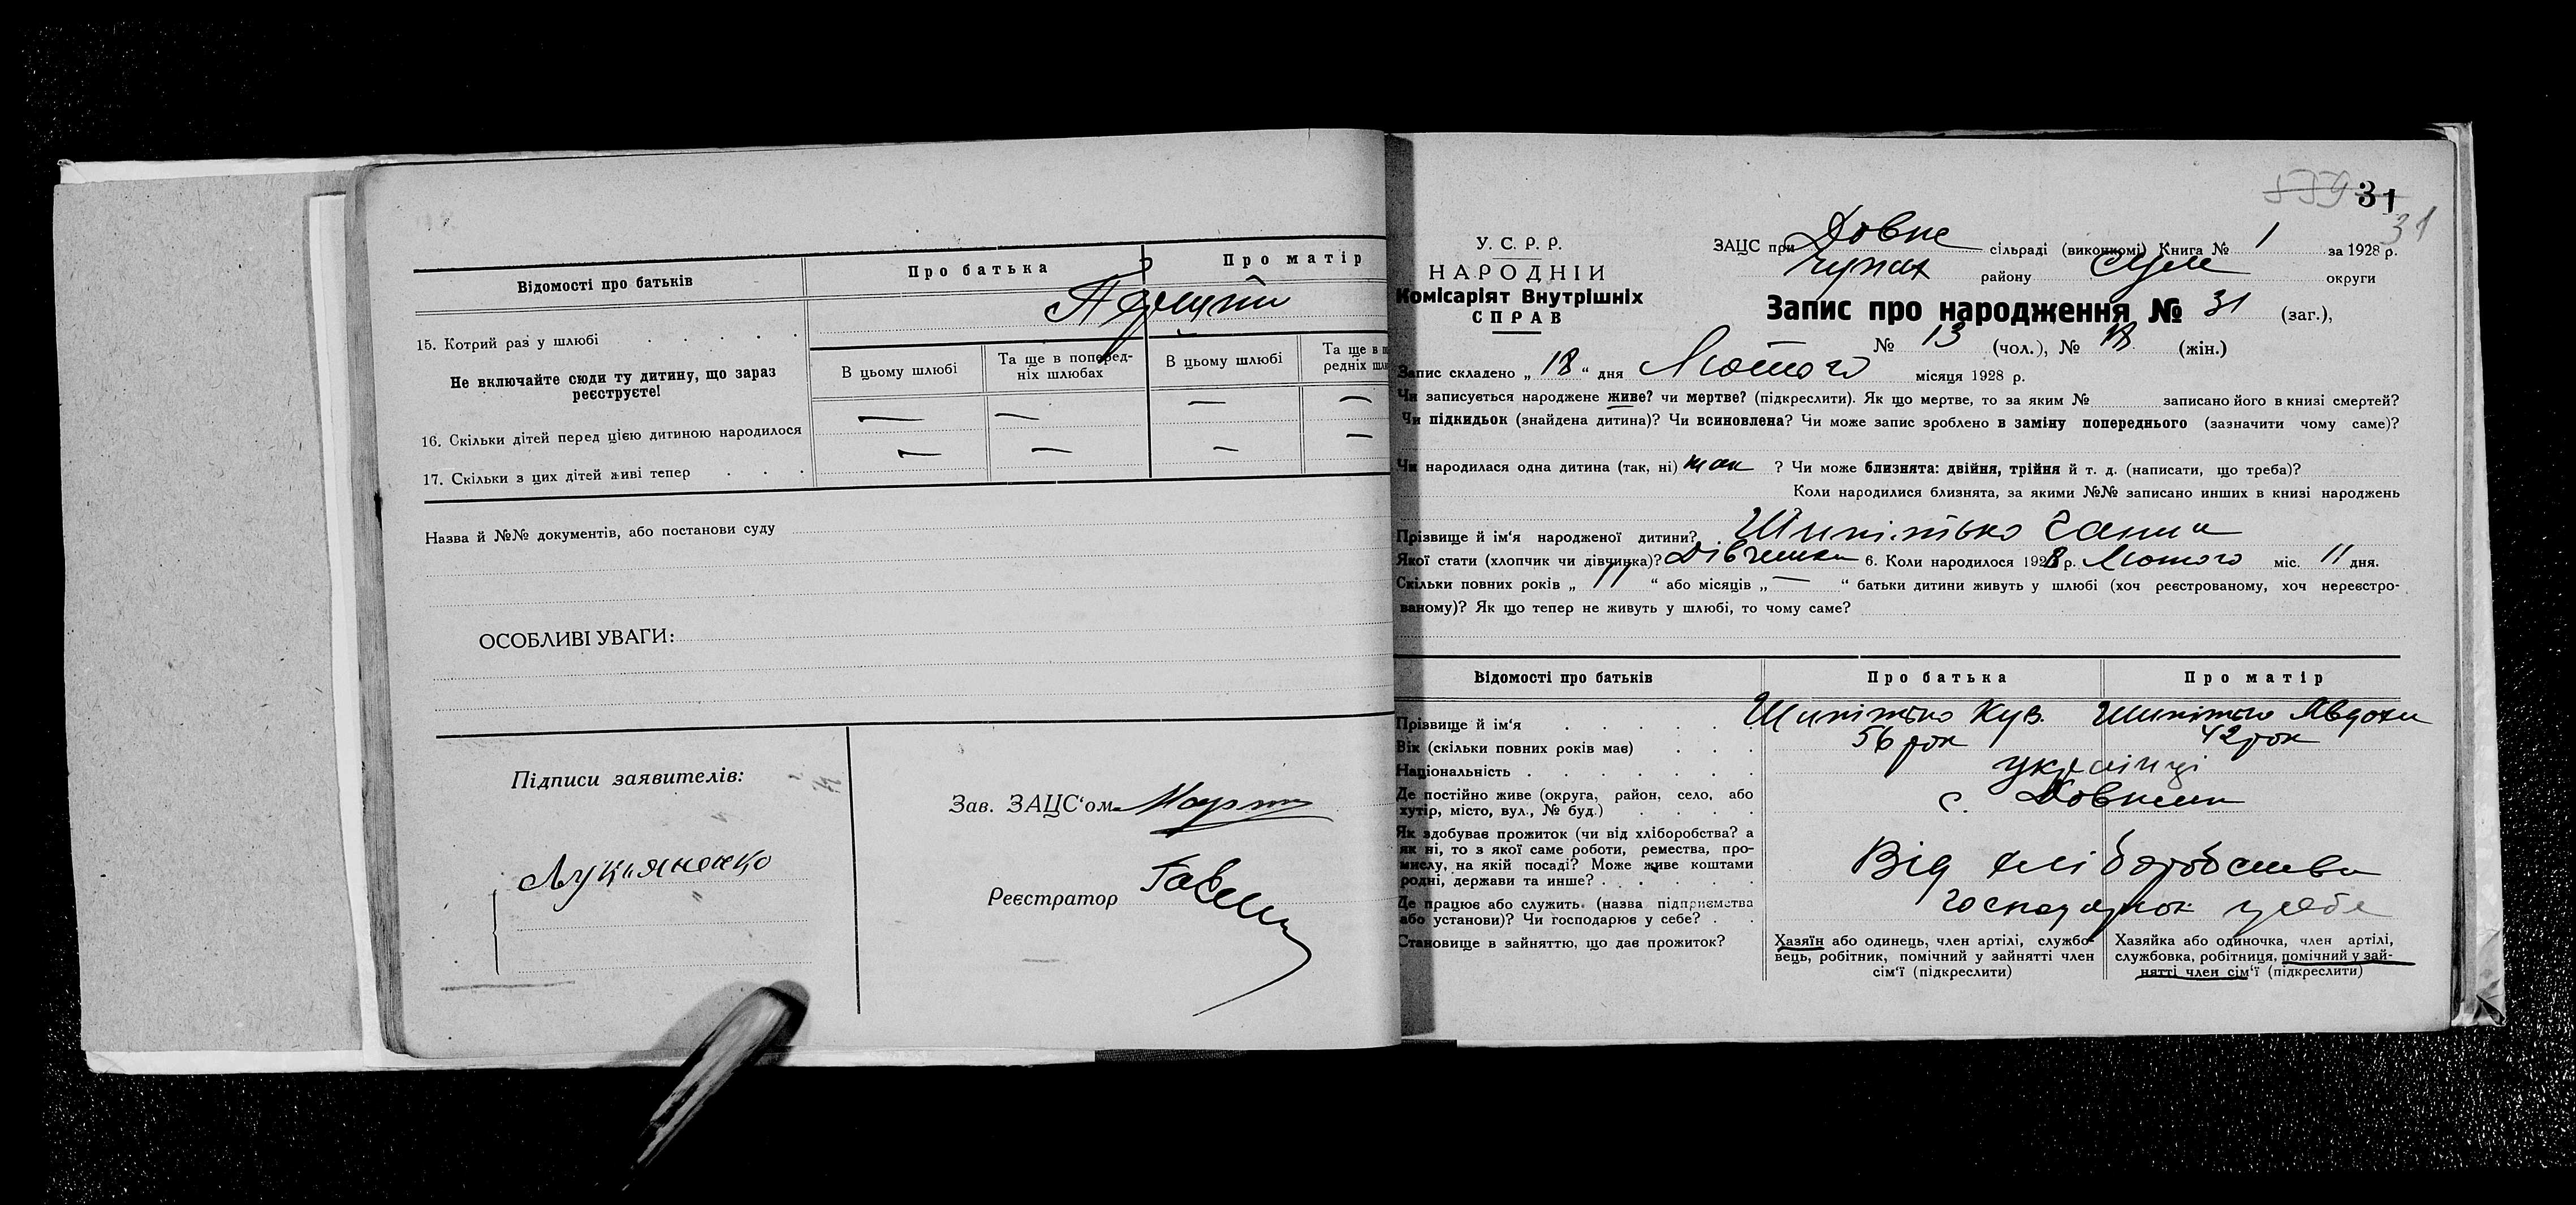 Відомості про батьків
Про батька
Про матір
15. Котрий раз у шлюбі
Не включайте сюди ту дитину, що зараз
реєструєте!
В цьому шлюбі
Та ще в поперед-
ніх шлюбах
В цьому шлюбі
Та ще в
редніх
16. Скільки дітей перед цією дитиною народилося — — — —
17. Скільки з цих дітей живі тепер — — — —
Назва й №№ документів, або постанови суду
ОСОБЛИВІ УВАГИ:
Підписи заявителів:
Лук'яненко
Зав. ЗАЦС'ом
Реєстратор
559 31
31
У. С. Р. Р.
НАРОДНІЙ
Комісаріят Внутрішніх
СПРАВ
ЗАЦС при Довже сільраді (виконкомі) Книга № 1 за 1928 р.
району Сум округи
Запис про народження № 31 (заг.),
№ 13 (чол.), № 18 (жін.)
Запис складено „ 18 “ дня Лютого місяця 1928 р.
Чи записується народжене живе? чи мертве? (підкреслити). Як що мертве, то за яким № записано його в книзі смертей?
Чи підкидьок (знайдена дитина)? Чи всиновлена? Чи може запис зроблено в заміну попереднього (зазначити чому саме)?
Чи народилася одна дитина (так, ні) так ? Чи може близнята: двійня, трійня й т. д. (написати, що треба)?
Коли народилися близнята, за якими №№ записано инших в книзі народжень
Прізвище й ім'я народженої дитини? Шипітько Ганна
Якої стати (хлопчик чи дівчинка)? Дівчинка 6. Коли народилося 1928 р. Лютого міс. 11 дня.
Скільки повних років „ 11 “ або місяців „ — “ батьки дитини живуть у шлюбі (хоч реєстрованому, хоч нереєстро-
ваному)? Як що тепер не живуть у шлюбі, то чому саме?
Відомості про батьків
Про батька
Про матір
Прізвище й ім'я Шипітько Куз. Шипітько Явдоха
Вік (скільки повних років має) 56 рок 42 рок
Національність українці
Де постійно живе (округа, район, село, або
хутір, місто, вул., № буд.) с.
Як здобуває прожиток (чи від хліборобства? а
як ні, то з якої саме роботи, ремества, про-
мислу, на якій посаді? Може живе коштами
родні, держави та инше?
Від хліборобства
Де працює або служить (назва підприємства
або установи)? Чи господарює у себе?
у себе
Становище в зайняттю, що дає прожиток?
Хазяїн або одинець, член артілі, службо-
вець, робітник, помічний у зайнятті член
сім'ї (підкреслити)
Хазяйка або одиночка, член артілі,
службовка, робітниця, помічний у зай-
нятті член сім'ї (підкреслити)